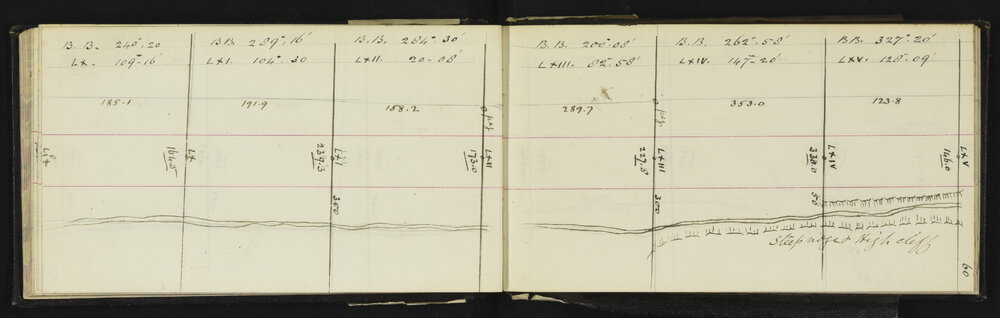 B.B. 240°.20
B.B. 289°.16'
B.B. 284°.30'
LX. 109°.16'
LXI. 104°.30
LXII. 20.08'
185.1
191.9
158.2
164.5
LX
239.3
LXI
300
173.0
LXII
B.B. 200°.08'
B.B. 262°.58'
B.B. 327°.20'
LXIII. 82°.58'
LXIV. 147°.20'
LXV. 128°.09'
289.7
353.0
123.8
227.8
LXIII
300
338.0
LXIV
50
146.0
LXV
60
Steep
high cliff